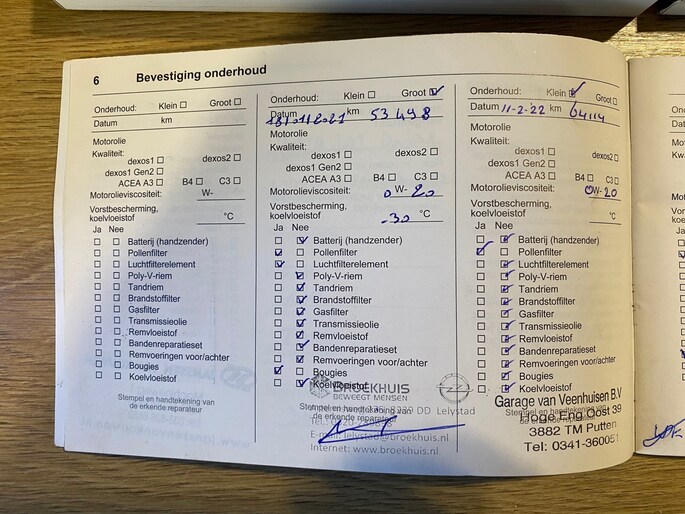 6 Bevestiging onderhoud
Onderhoud: Klein Groot
Datum km
Motorolie
Kwaliteit:
dexos1 dexos2
dexos1 Gen2
ACEA A3 B4 C3
Motorolieviscositeit: W-
Vorstbescherming,
koelvloeistof °C
Ja Nee
Batterij (handzender)
Pollenfilter
Luchtfilterelement
Poly-V-riem
Tandriem
Brandstoffilter
Gasfilter
Transmissieolie
Remvloeistof
Bandenreparatieset
Remvoeringen voor/achter
Bougies
Koelvloeistof
Stempel en handtekening van
de erkende reparateur
Onderhoud: Klein Groot
Datum km 53498
Motorolie
Kwaliteit:
dexos1 dexos2
dexos1 Gen2
ACEA A3 B4 C3
Motorolieviscositeit: 0 W- 20
Vorstbescherming,
koelvloeistof -30 °C
Ja Nee
Batterij (handzender)
Pollenfilter
Luchtfilterelement
Poly-V-riem
Tandriem
Brandstoffilter
Gasfilter
Transmissieolie
Remvloeistof
Bandenreparatieset
Remvoeringen voor/achter
Bougies
Koelvloeistof
BROEKHUIS
BEWEEGT MENSEN
Stempel en handtekening van
de erkende reparateur
DD Lelystad
E-mail: lelystad@broekhuis.nl
Internet: www.broekhuis.nl
Onderhoud: Klein Groot
Datum 11-2-22 km 64114
Motorolie
Kwaliteit:
dexos1 dexos2
dexos1 Gen2
ACEA A3 B4 C3
Motorolieviscositeit: 0W-20
Vorstbescherming,
koelvloeistof °C
Ja Nee
Batterij (handzender)
Pollenfilter
Luchtfilterelement
Poly-V-riem
Tandriem
Brandstoffilter
Gasfilter
Transmissieolie
Remvloeistof
Bandenreparatieset
Remvoeringen voor/achter
Bougies
Koelvloeistof
Garage van Veenhuisen B.V
Stempel en handtekening van
de erkende reparateur
Hoge Eng Oost 39
3882 TM Putten
Tel: 0341-360051